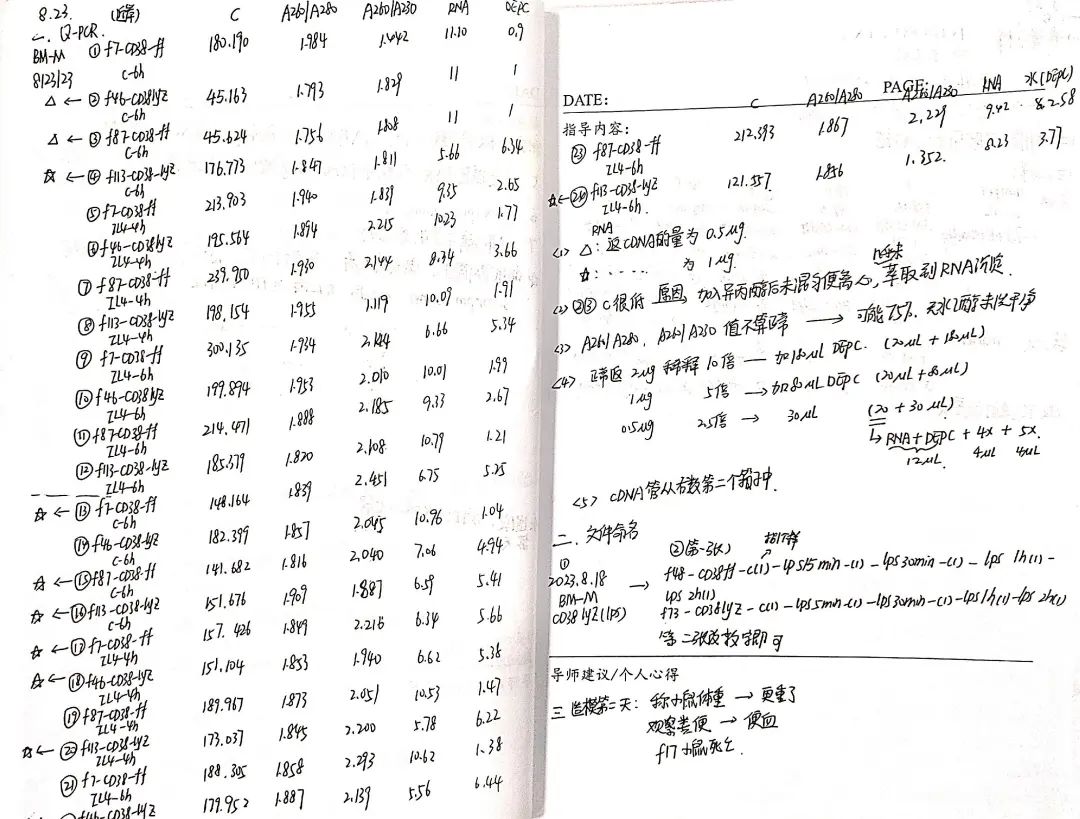 8.23.
C A260/A280 A260/A230 RNA DEPC
一、Q-PCR.
BM-M ① f7-CD38-ff 180.190 1.984 1.442 11.10 0.9
8/23/23 C-6h
△ ← ② f46-CD38lyZ 45.163 1.793 1.829 11 1
C-6h
△ ← ③ f87-CD38-ff 45.624 1.756 1.808 11 1
C-6h
☆ ← ④ f113-CD38-lyZ 176.773 1.847 1.811 5.66 6.34
C-6h
⑤ f7-CD38-ff 213.903 1.940 1.839 9.35 2.65
IL4-4h
⑥ f46-CD38lyZ 195.564 1.894 2.215 10.23 1.77
IL4-4h
⑦ f87-CD38-ff 239.950 1.930 2.144 8.34 3.66
IL4-4h
⑧ f113-CD38-lyZ 198.154 1.955 1.119 10.09 1.91
IL4-4h
⑨ f7-CD38-ff 300.135 1.934 6.66 5.34
IL4-6h
⑩ f46-CD38lyZ 199.894 1.953 2.010 10.01 1.99
IL4-6h
⑪ f87-CD38-ff 214.471 1.888 2.185 9.33 2.67
IL4-6h
⑫ f113-CD38-lyZ 185.379 1.820 2.108 10.79 1.21
IL4-6h
☆ ← ⑬ f7-CD38-ff 148.164 1.839 2.451 6.75 5.25
C-6h
⑭ f46-CD38-lyZ 182.399 1.857 2.045 10.96 1.04
C-6h
☆ ← ⑮ f87-CD38-ff 141.682 1.816 2.040 7.06 4.94
C-6h
☆ ← ⑯ f113-CD38-lyZ 151.676 1.909 1.887 6.59 5.41
C-6h
☆ ← ⑰ f7-CD38-ff 157.426 1.849 2.216 6.34 5.66
IL4-4h
☆ ← ⑱ f46-CD38-lyZ 151.104 1.853 1.940 6.62 5.38
IL4-4h
⑲ f87-CD38-ff 189.967 1.873 2.051 10.53 1.47
IL4-4h
☆ ← ⑳ f113-CD38-lyZ 173.037 1.845 2.200 5.78 6.22
IL4-4h
㉑ f7-CD38-ff 188.305 1.858 2.293 10.62 1.38
IL4-6h
f46-CD38-lyZ 179.952 1.887 2.139 5.56 6.44
DATE: PAGE:
C A260/A280 A260/A230 RNA 水(DEPC)
指导内容:
㉓ f87-CD38-ff 212.393 1.867 2.229 9.42 2.58
IL4-6h
☆ ← ㉔ f113-CD38-lyZ 121.557 1.856 1.352. 8.23 3.77
IL4-6h.
RNA
<1> △: 返CDNA的量为 0.5μg.
☆: ····· 为 1μg.
<2> ②③ C很低 原因 加入异丙醇后未混匀便离心, 萃取到RNA沉淀.
<3> A260/A280, A260/A230 值不算高 → 可能75% 乙醇未洗干净
<4> 返 2μg 稀释 10倍 — 加180μL DEPC. (20μL + 180μL)
1μg 5倍 → 加80μL DEPC (20μL + 80μL)
0.5μg 2.5倍 → 30μL (20 + 30μL)
↳ RNA+DEPC + 4X + 5X.
12μL 4μL 4μL
<5> CDNA管从右数第二个箱子中.
二、文件命名
① ②(第一张)
2023.8.18 → f48-CD38ff-C(1)-LPS15min-(1)-LPS30min-(1)-LPS 1h(1)-
BM-M LPS 2h(1)
CD38lyZ(LPS) f73-CD38lyZ-C(1)-LPS15min-(1)-LPS30min-(1)-LPS1h(1)-LPS2h(1)
第二张改数字即可
导师建议/个人心得
三 造模第二天: 称小鼠体重 → 更重了
观察粪便 → 便血
f17小鼠死亡.